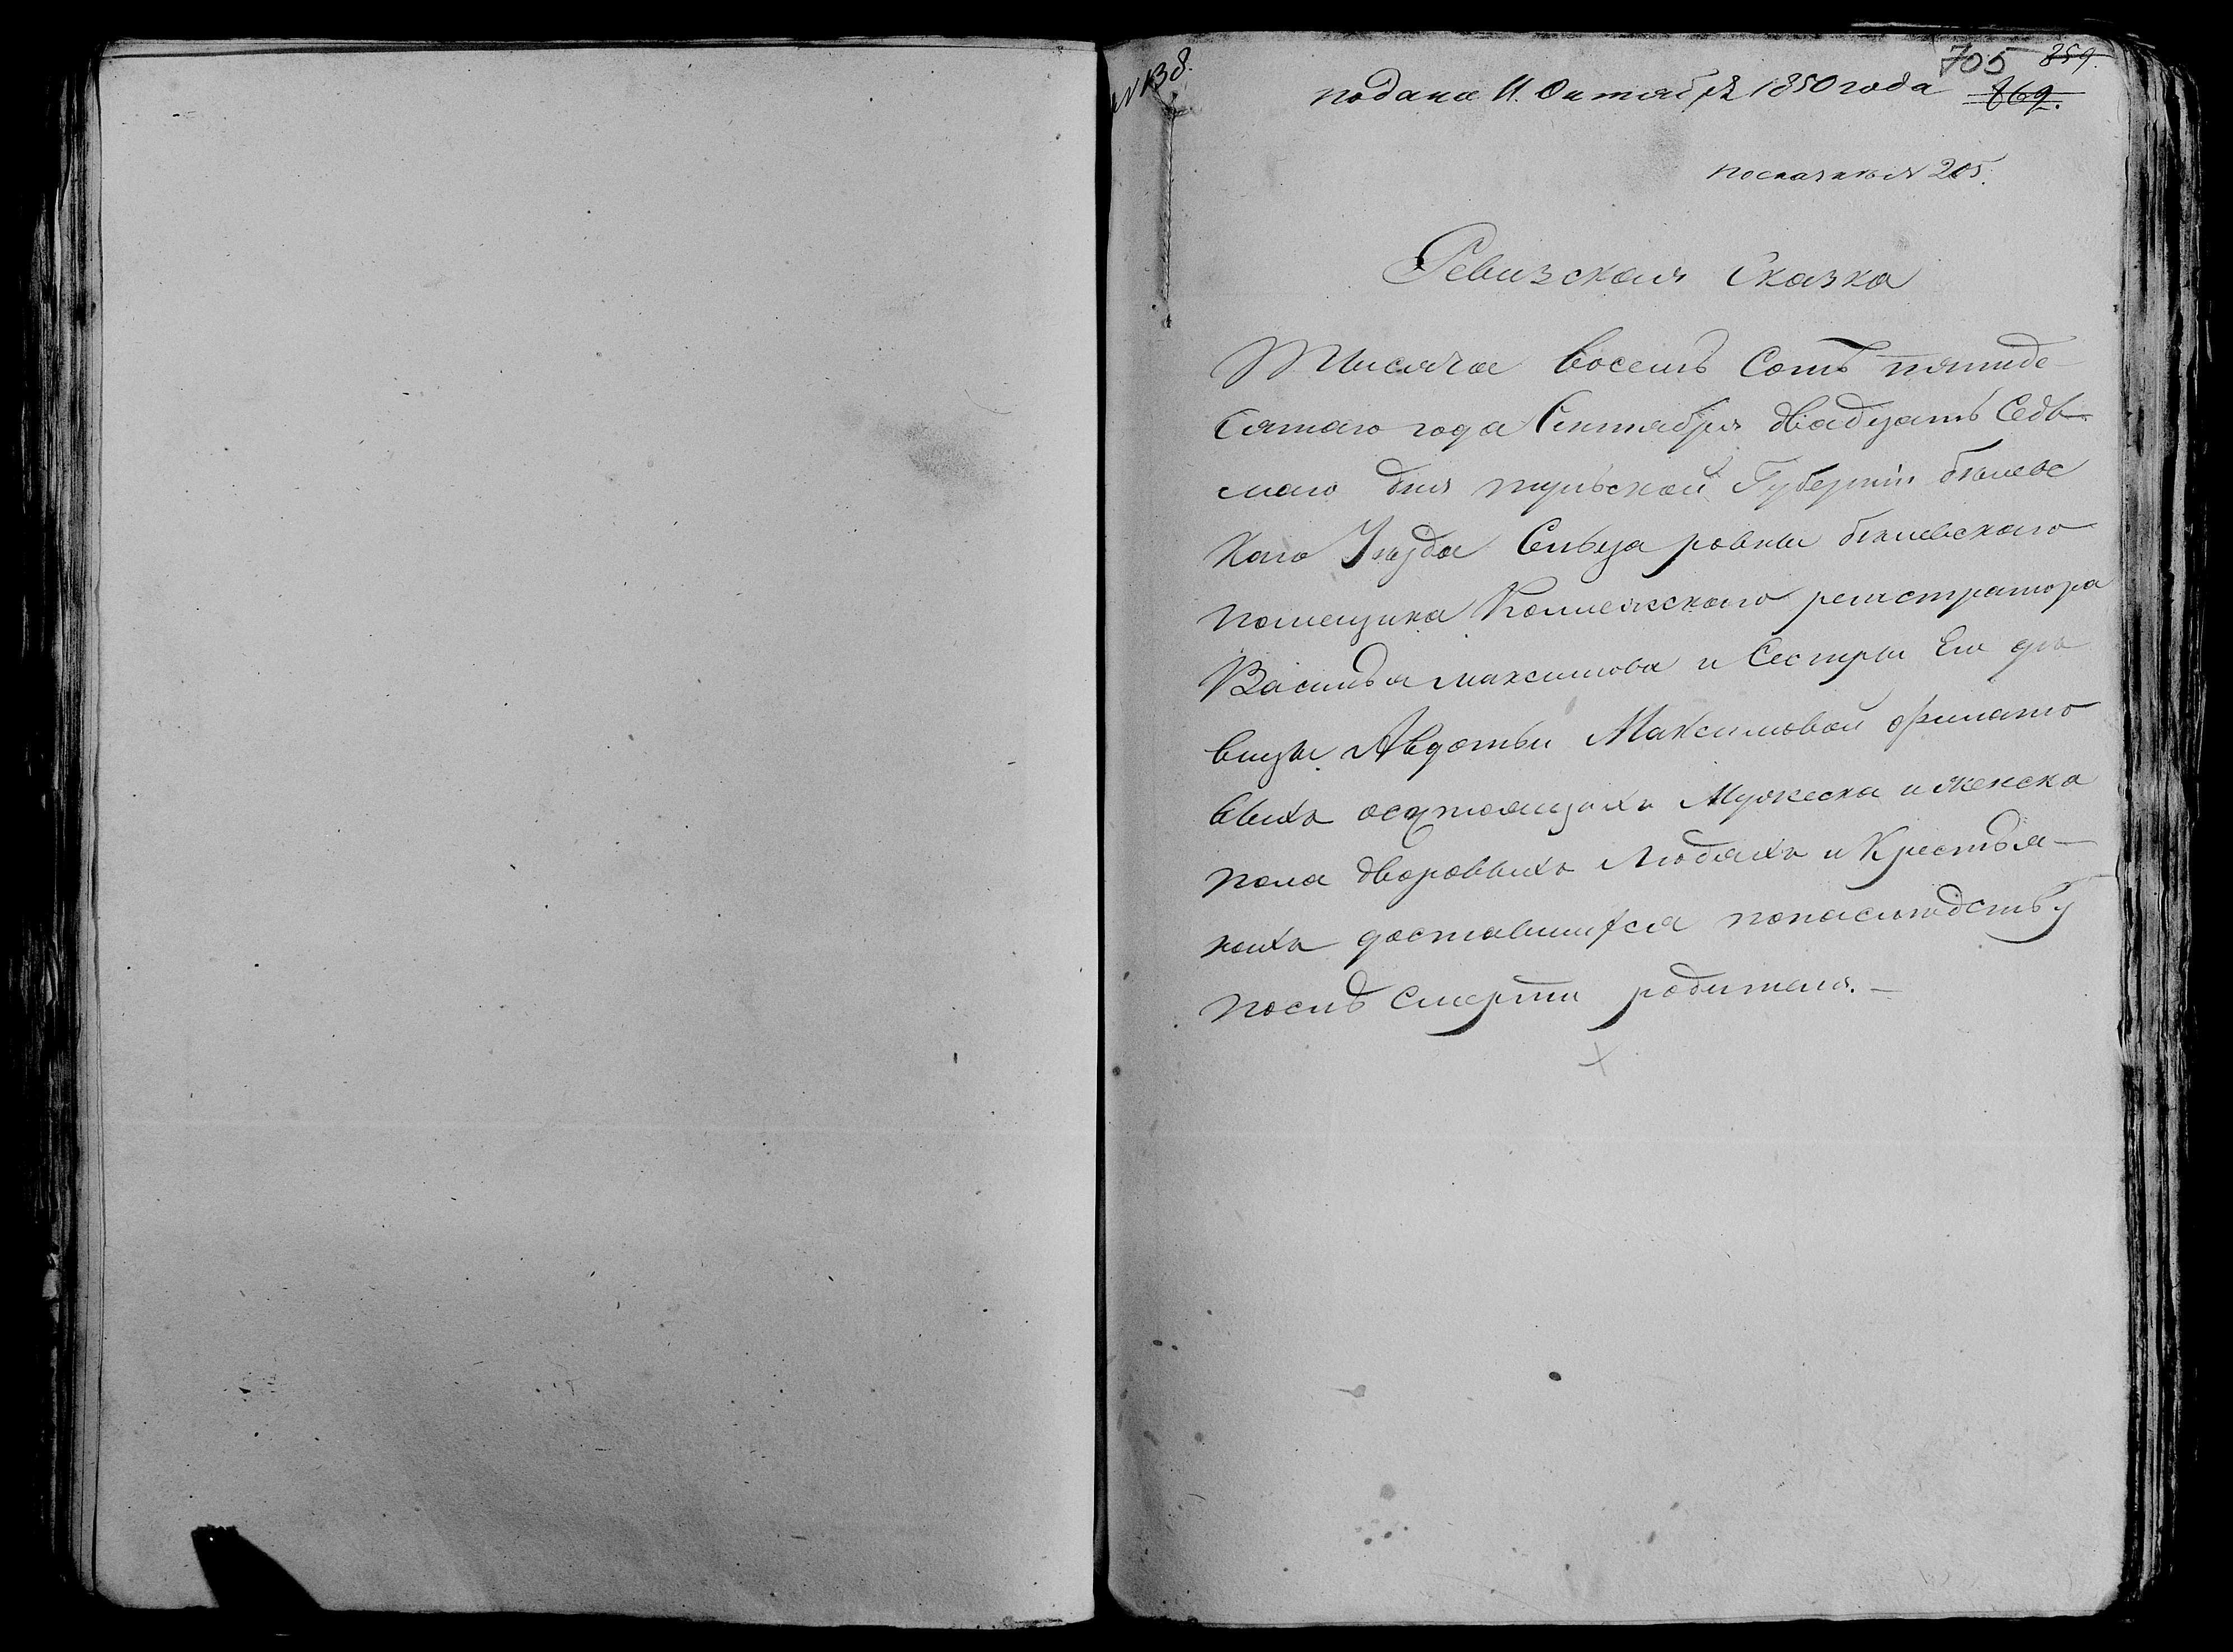 № 138.
705 859
подана 11. Октября 1850 года 869.
посказке № 205.
Ревизская Сказка
Тысяча восемь Сотъ пятиде-
сятаго года Сентября двадцать Седь-
маго дня тульской Губерніи бѣлевс
каго Уѣзда Сельца ровны бѣлевскаго
помещика Коллежскаго регистратора
Василья максимова и Сестры Его дѣ
вицы Авдотьи Максимовой филато
выхъ осостоящихъ Мужеска и женска
пола дворовыхъ Людяхъ и Крестья-
нахъ доставшихся понаследству
послѣ Смерти родителя.-